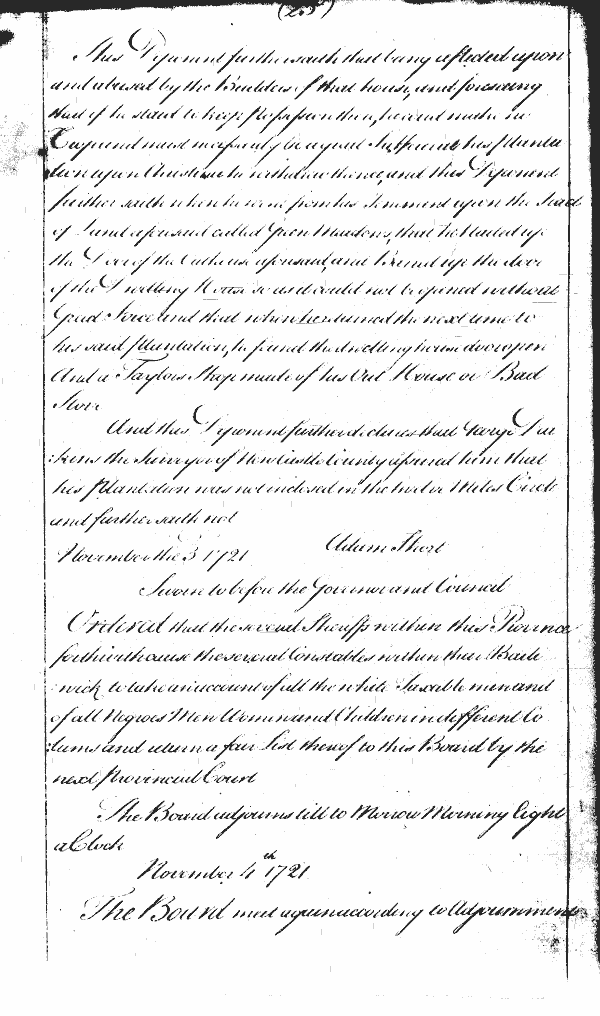 This Deponent further saith that being assaulted upon
and abused by the Builders of that house, and foreseeing
that if he staid to keep Possession there, he could make no
Crop and must necessarily be a great Sufferer by his planta
tion upon Christiana he withdrew thence, and this Deponent
further saith when he went from his Tenement upon the
of Land aforesaid called that he nailed up
the Door of the Outhouse aforesaid, and up the door
of the Dwelling House so as it could not be opened without
Great Force and that when he returned the next time to
his said plantation, he found the dwelling house door open
And a Taylors Shop made of his Out House or
Store
And this Deponent further declares that George Daw
:kens the Surveyor of New Castle County assured him that
his Plantation was not inclosed in the twelve Miles Circle
and further saith not
November the 3 1721 Adam Short
Sworn to before the Governor and Council
Ordered that the several Sheriffs within this Province
forthwith cause the several Constables within their Baili
:wick to take an account of all the white Taxable men and
of all Negroes Men Women and Children in different Co
:lums and return a fair List thereof to this Board by the
next Provincial Court
The Board adjourns till to Morrow Morning Eight
a Clock
November 4th 1721
The Board met again according to Adjournment